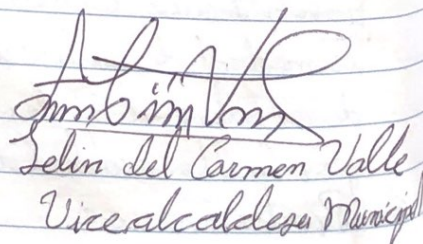 Selin del Carmen Valle
Vicealcaldesa Municipal